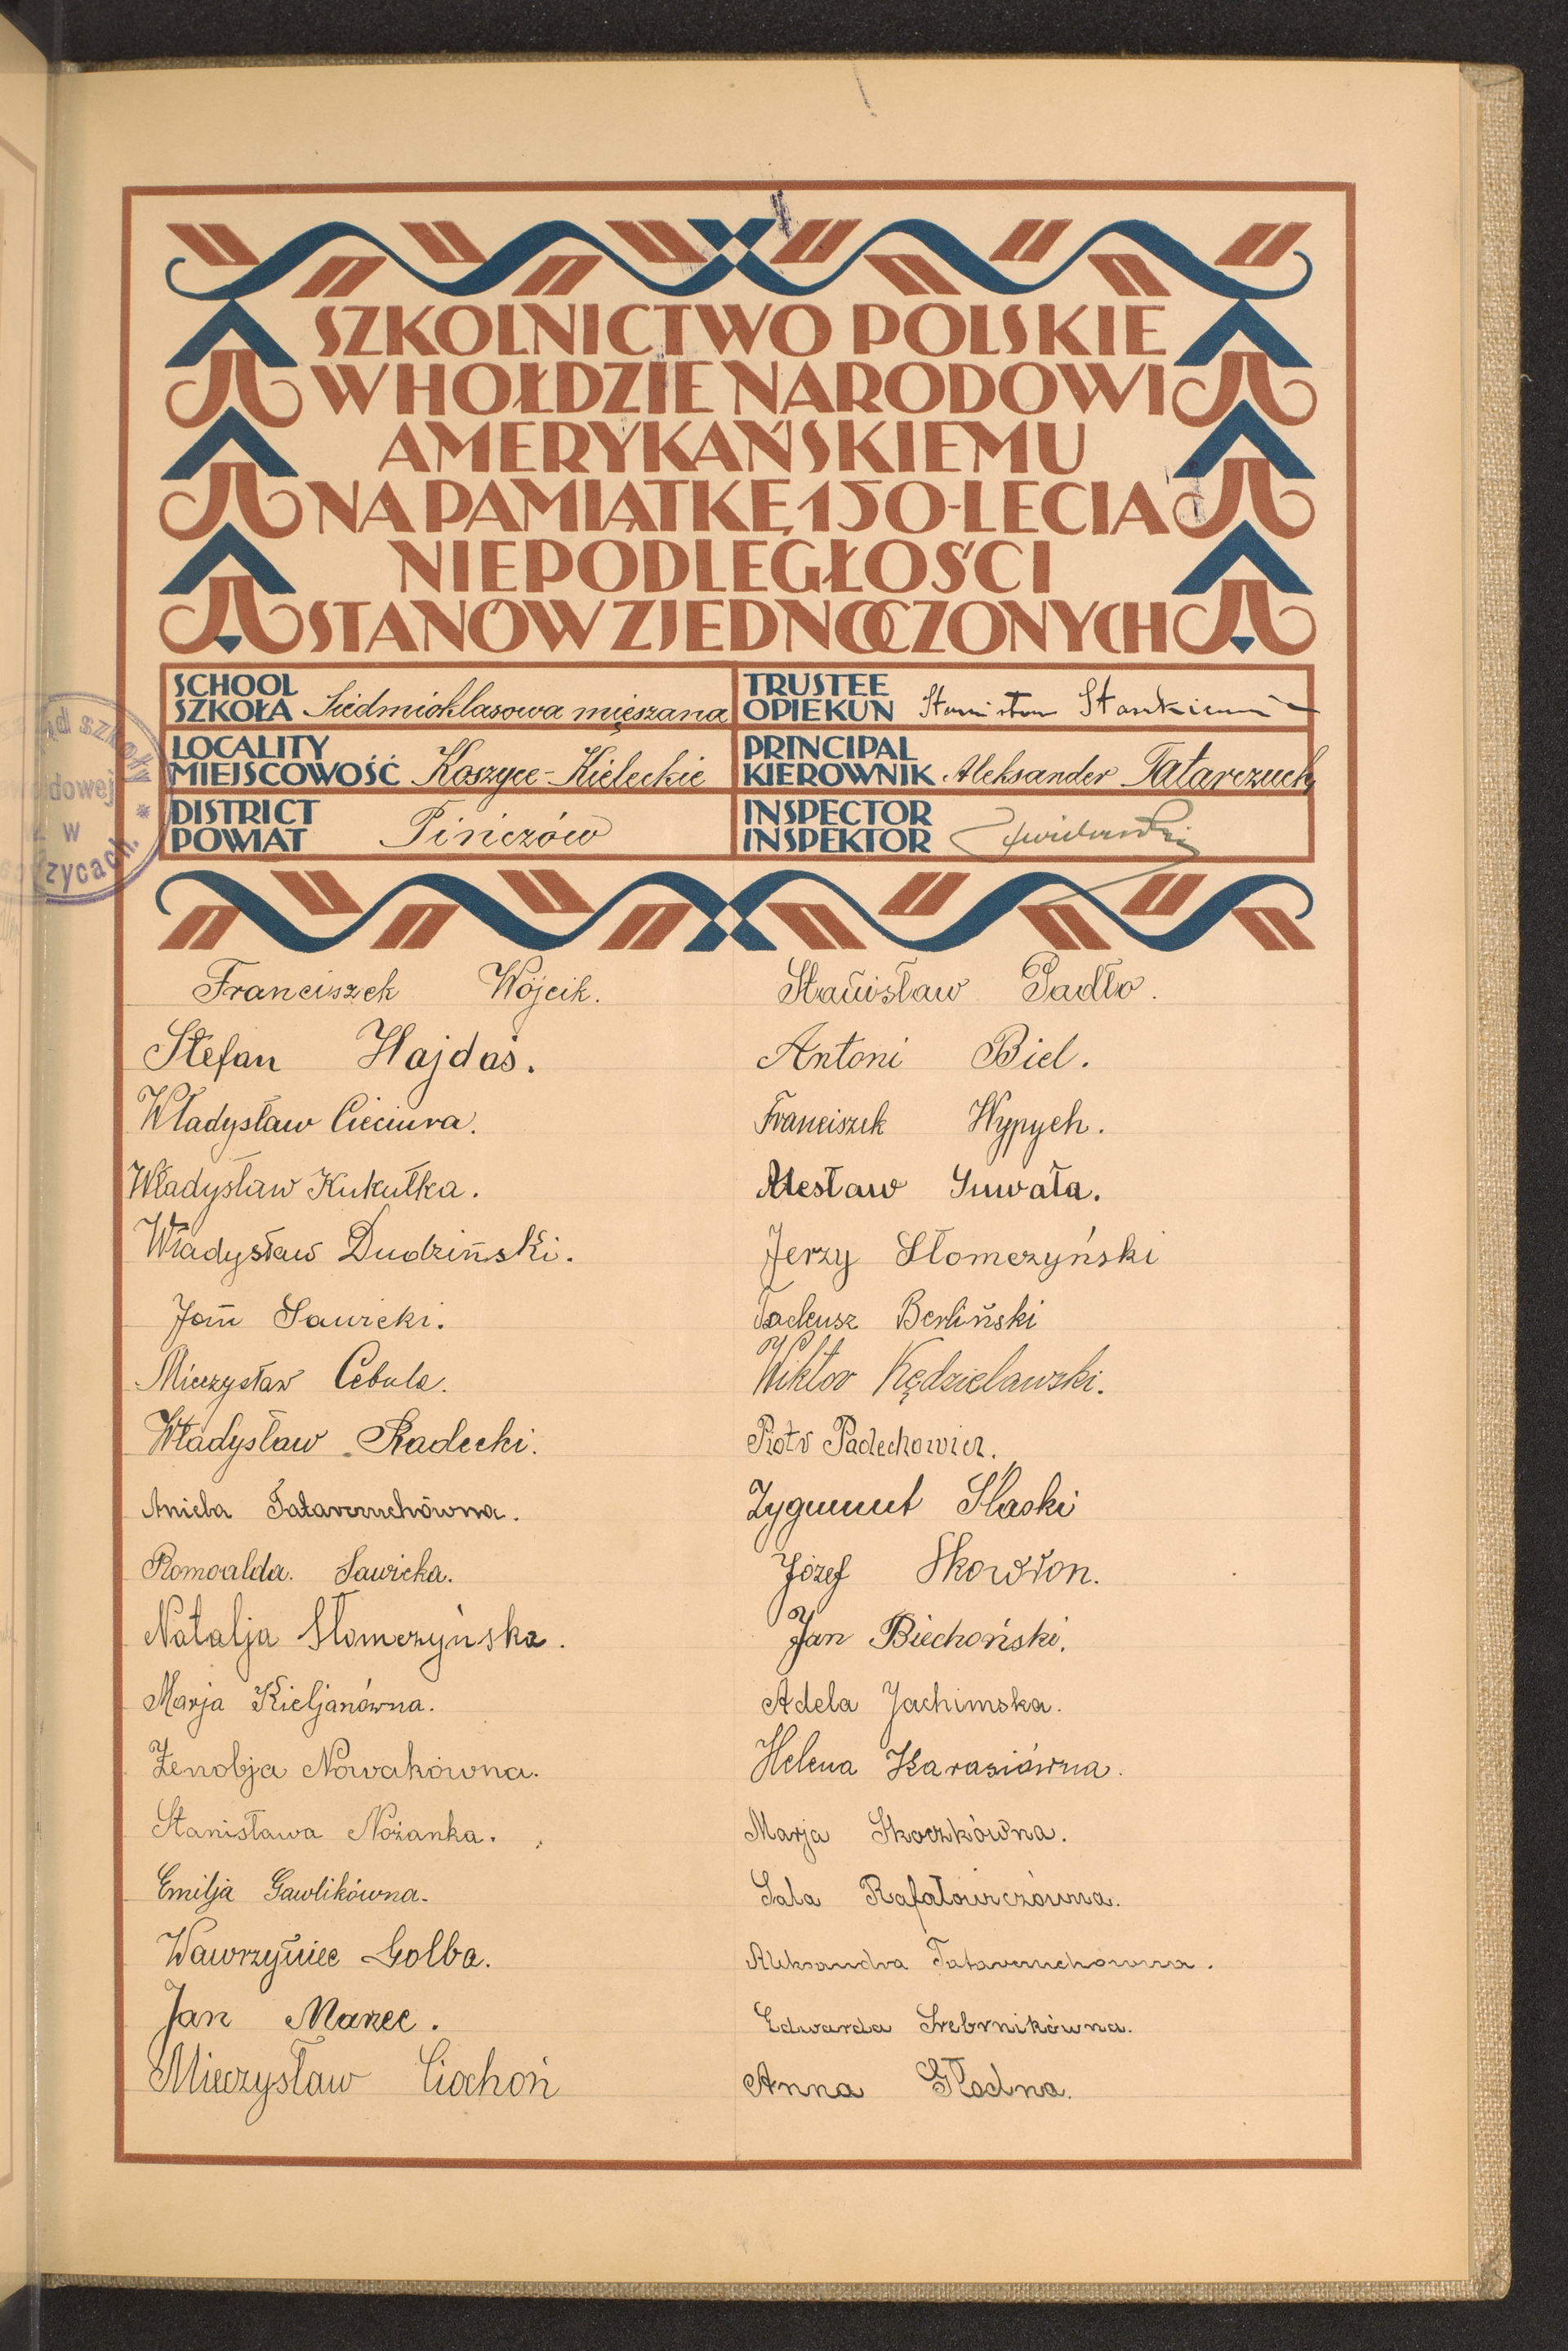 SZKOLNICTWO POLSKIE
W HOŁDZIE NARODOWI
AMERYKAŃSKIEMU
NA PAMIĄTKĘ 150-LECIA
NIEPODLEGŁOŚCI
STANÓW ZJEDNOCZONYCH
SCHOOL
SZKOŁA Siedmioklasowa mięszana
TRUSTEE
OPIEKUN Stanisław
LOCALITY
MIEJSCOWOŚĆ Koszyce-Kieleckie
PRINCIPAL
KIEROWNIK Aleksander Tatarczuch
DISTRICT
POWIAT Pińczów
INSPECTOR
INSPEKTOR
Franciszek Wójcik.
Stefan Hajdaś.
Władysław Cieciura.
Władysław Kukułka.
Władysław Dudziński.
Jan Sawicki.
Mieczysław Cebula.
Władysław Radecki.
Aniela Tatarczuchówna.
Romualda. Sawicka.
Natalja Słomczyńska.
Marja Kieljanówna.
Zenobja Nowakówna.
Stanisława Nożanka.
Emilja Gawlikówna.
Wawrzyniec Golba.
Jan Marzec.
Mieczysław Ciochoń
Stanisław Padło.
Antoni Biel.
Franciszek Wypych.
Jerzy Słomczyński
Tadeusz Berliński
Wiktor Kędzielawski.
Piotr
Zygmunt Slaski
Józef Skowron.
Jan Biechoński.
Adela Jachimska.
Helena Karasiówna.
Marja Skoczkówna.
Sala Rafałowiczówna.
Aleksandra Tatarczuchówna.
Edwarda Srebrnikówna.
Anna Głodna.